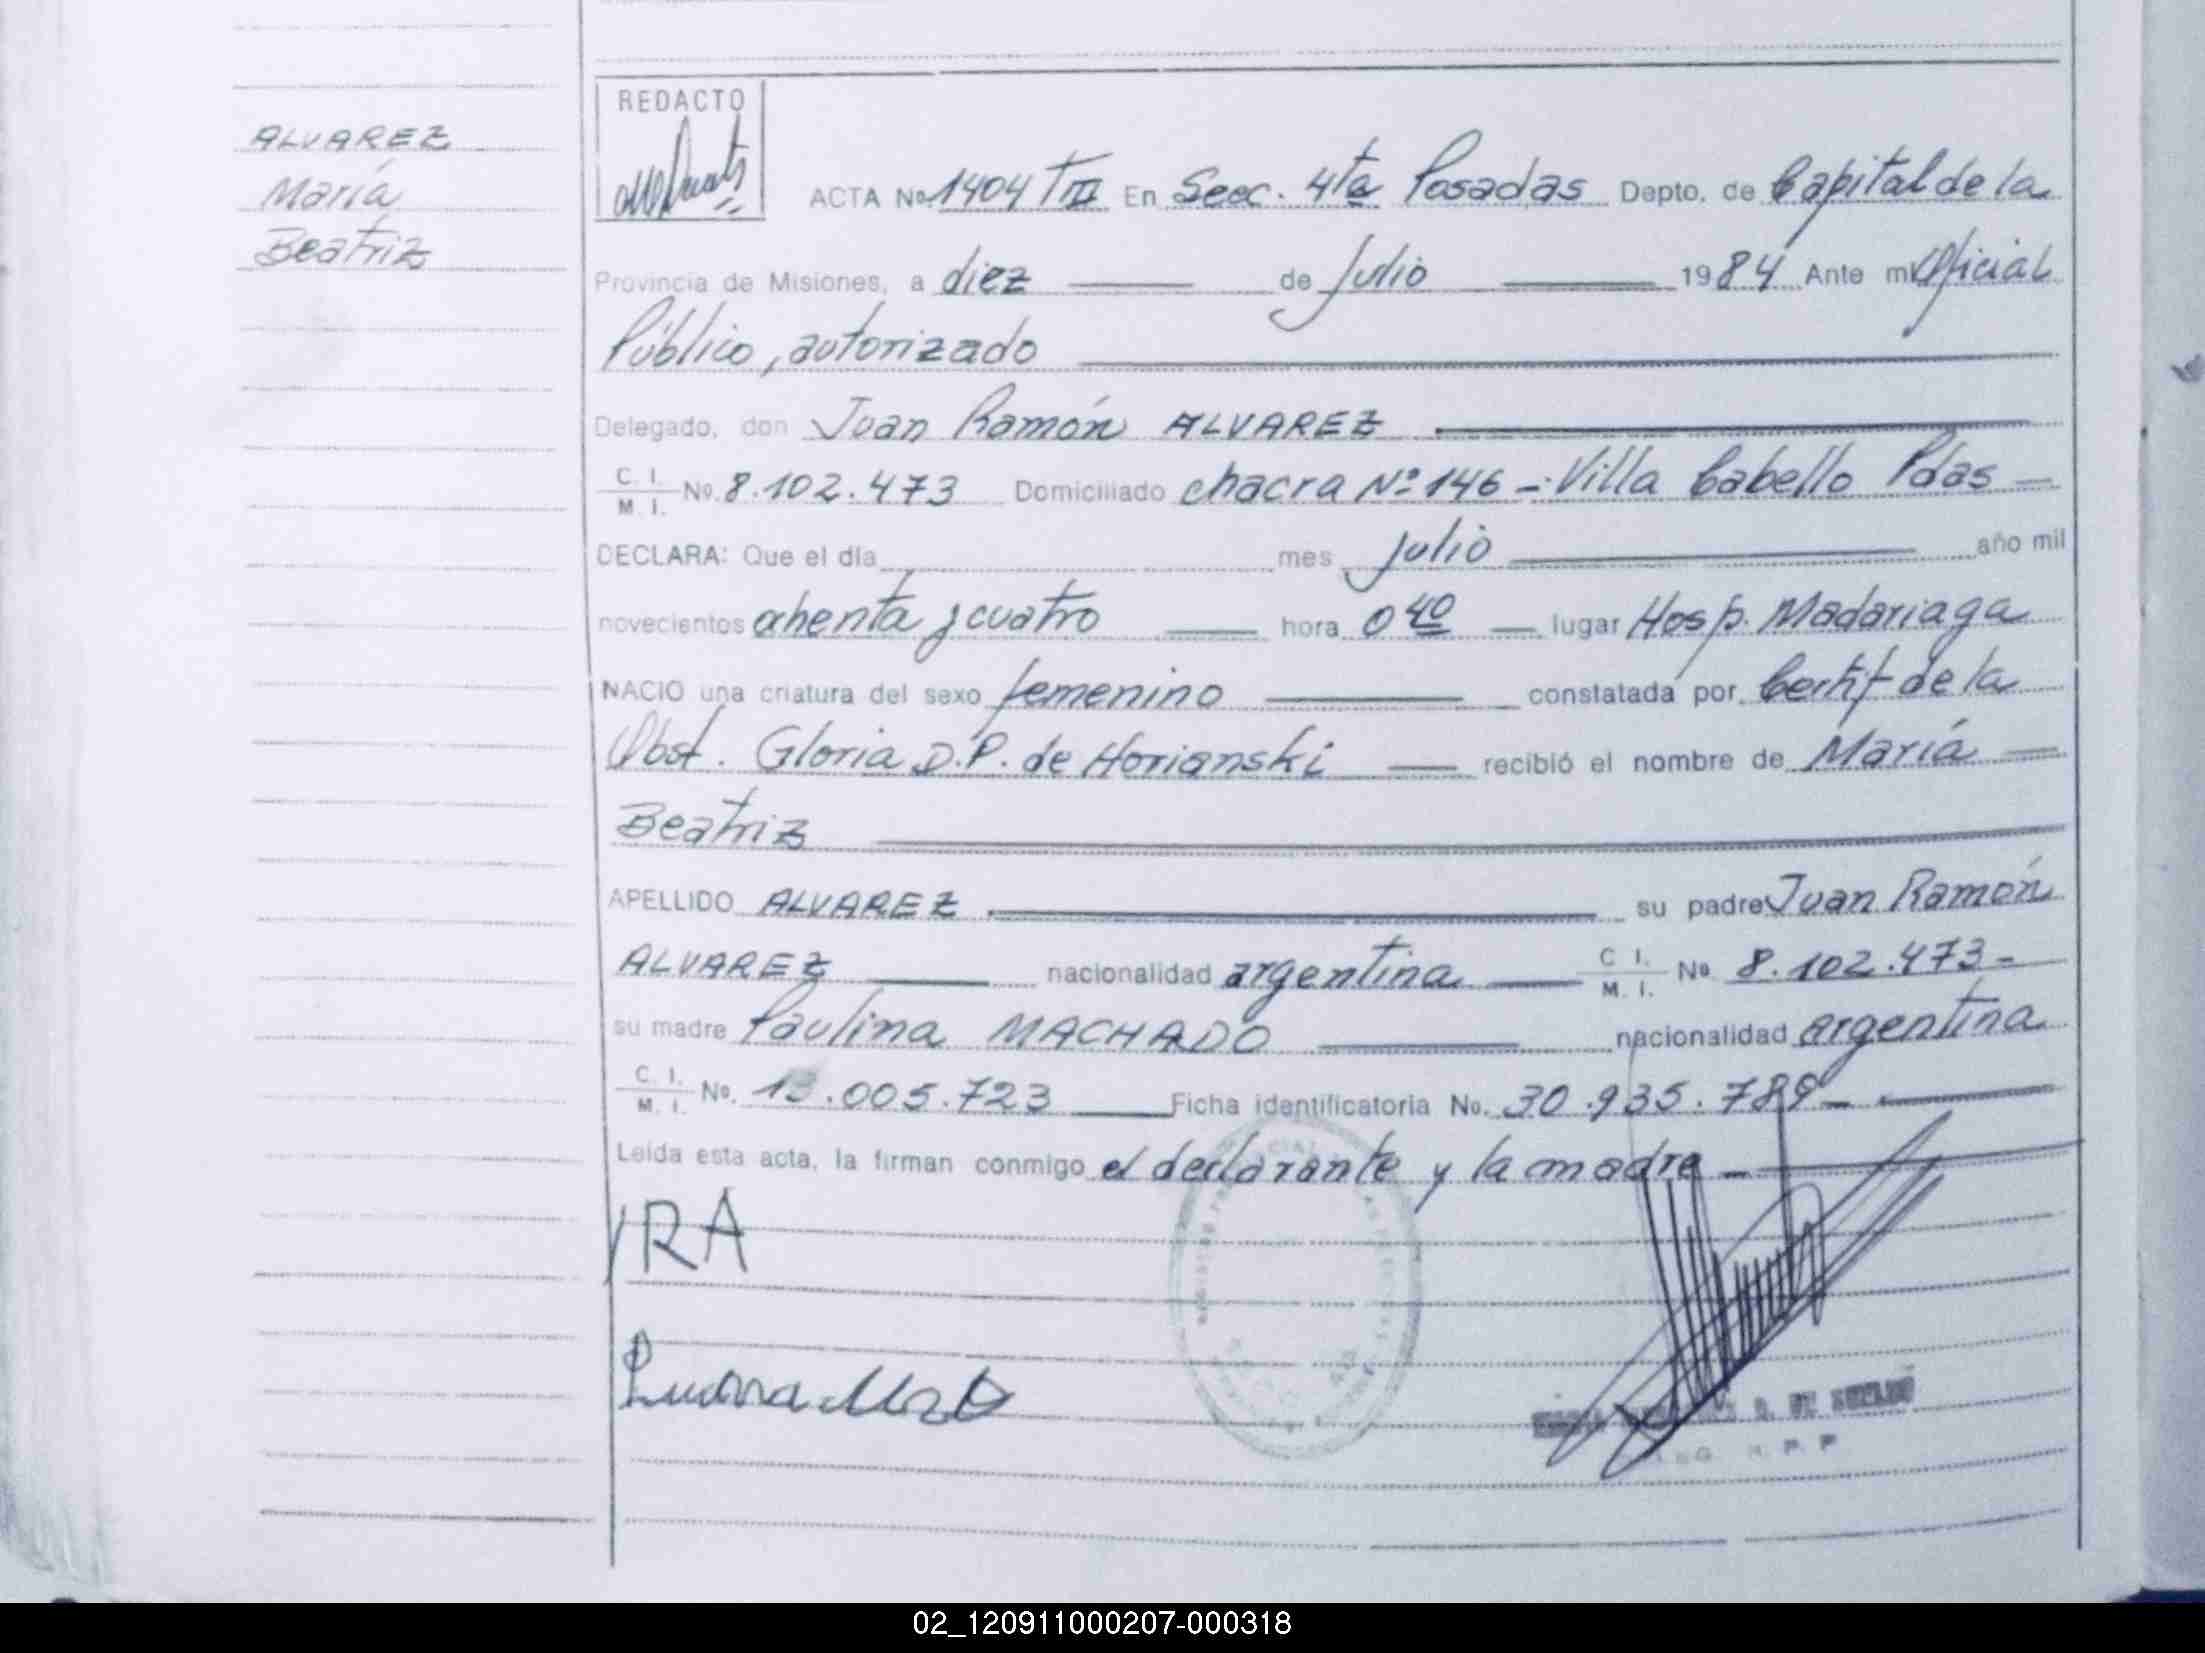 ALVAREZ
María
Beatriz
REDACTO
ACTA No. 1404 TIII En Secc. 4ta Posadas Depto. de Capital de la
Provincia de Misiones, a diez de Julio 1984 Ante mi Oficial
Público, autorizado
Delegado, don Juan Ramón ALVAREZ
C. I.
M. I. No. 8.102.473 Domiciliado chacra Nº 146 - Villa Cabello Pdas
DECLARA: Que el día mes Julio año mil
novecientos ochenta y cuatro hora 0 40 lugar Hosp. Madariaga
NACIO una criatura del sexo femenino constatada por Certif de la
Obst. Gloria D.P. de Horianski recibió el nombre de María
Beatriz
APELLIDO ALVAREZ su padre Juan Ramón
ALVAREZ nacionalidad argentina C I. M. I. No 8.102.473-
su madre Paulina MACHADO nacionalidad argentina
C. I.
M. I. No. 13.005.723 Ficha identificatoria No. 30.935.789-
Leída esta acta, la firman conmigo el declarante y la madre
JRA
02_120911000207-000318